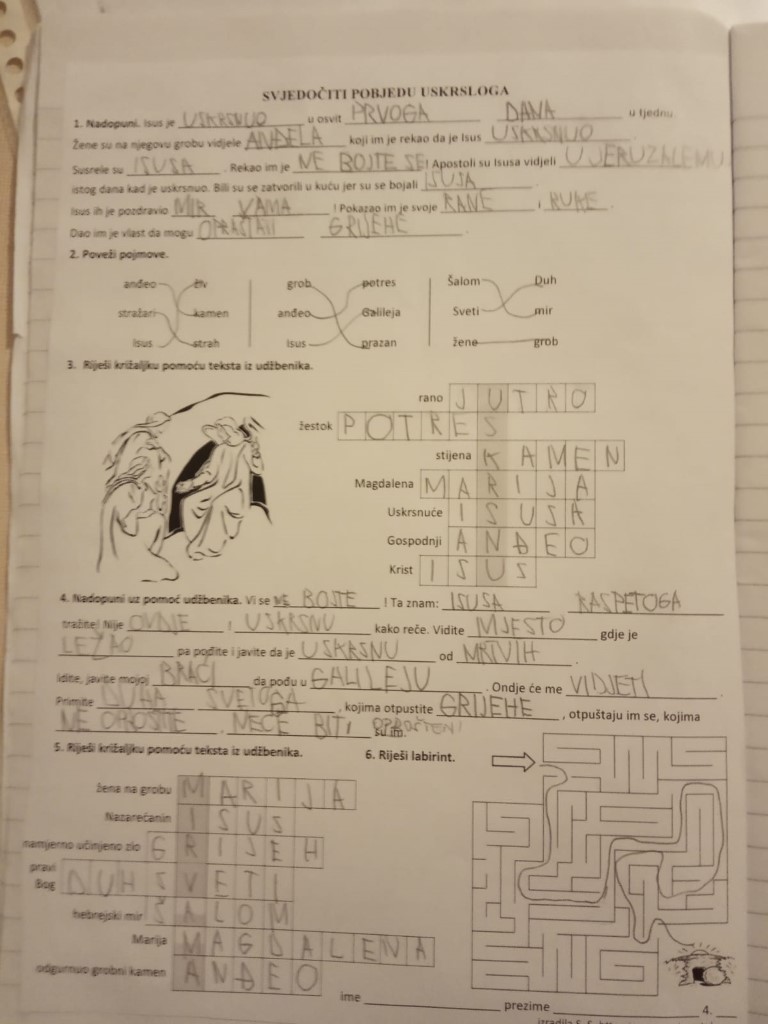 SVJEDOČITI POBJEDU USKRSLOGA
1. Nadopuni. Isus je USKRSNUO u osvit PRVOGA DANA u tjednu
Žene su na njegovu grobu vidjele ANĐELA koji im je rekao da je Isus USKRSNUO .
Susrele su ISUSA . Rekao im je NE BOJTE SE! Apostoli su Isusa vidjeli U JERUZALEMU
istog dana kad je uskrsnuo. Bili su se zatvorili u kuću jer su se bojali
Isus ih je pozdravio MIR VAMA ! Pokazao im je svoje RANE i RUKE.
Dao im je vlast da mogu OPRAŠTATI GRIJEHE .
2. Poveži pojmove.
anđeo živ grob potres Šalom Duh
stražari kamen anđeo Galileja Sveti mir
Isus strah Isus prazan žene grob
3. Riješi križaljku pomoću teksta iz udžbenika.
rano JUTRO
žestok POTRES
stijena KAMEN
Magdalena MARIJA
Uskrsnuće ISUSA
Gospodnji ANĐEO
Krist ISUS
4. Nadopuni uz pomoć udžbenika. Vi se NE BOJTE ! Ta znam: ISUSA RASPETOGA
tražite! Nije OVDJE i USKRSNU kako reče. Vidite MJESTO gdje je
LEŽAO pa pođite i javite da je USKRSNU od MRTVIH .
Idite, javite mojoj BRAĆI da pođu u GALILEJU . Ondje će me VIDJETI
Primite DUHA SVETOGA , kojima otpustite GRIJEHE , otpuštaju im se, kojima
NE OPROSTITE , NEĆE BITI OPROŠTENI su im.
5. Riješi križaljku pomoću teksta iz udžbenika. 6. Riješi labirint.
žena na grobu MARIJA
Nazarećanin ISUS
namjerno učinjeno zlo GRIJEH
pravi
Bog DUH SVETI
hebrejski mir ŠALOM
Marija MAGDALENA
odgurnuo grobni kamen ANĐEO
ime prezime 4.
izradila S. S.